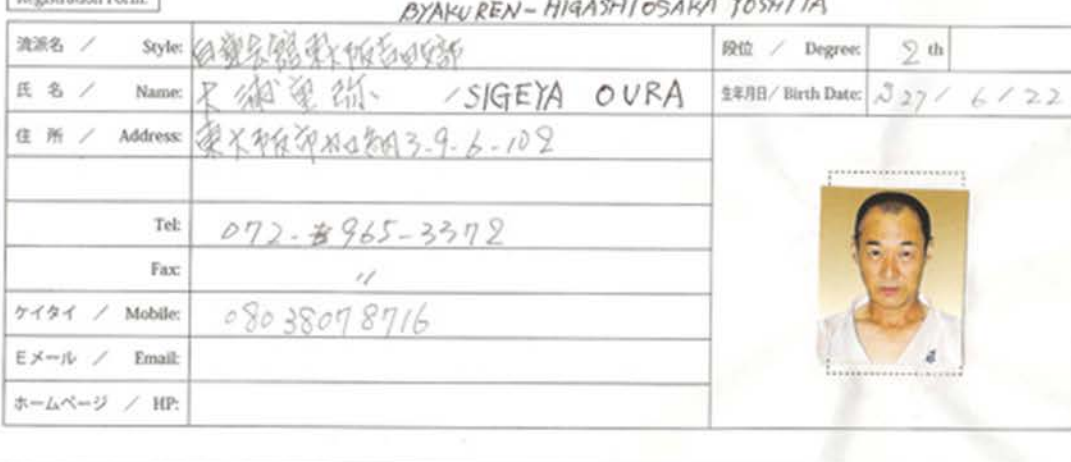 Registration Form:
BYAKUREN-HIGASHIOSAKA YOSHITA
流派名 / Style: 白蓮会館東大阪吉田支部
段位 / Degree: 2 th
氏 名 / Name: 大浦 弥 / SIGEYA OURA
生年月日 / Birth Date: S27 / 6 / 22
住 所 / Address: 東大阪市 3-9-6-102
Tel: 072-965-3372
Fax: 〃
ケイタイ / Mobile: 08038078716
Eメール / Email:
ホームページ / HP: